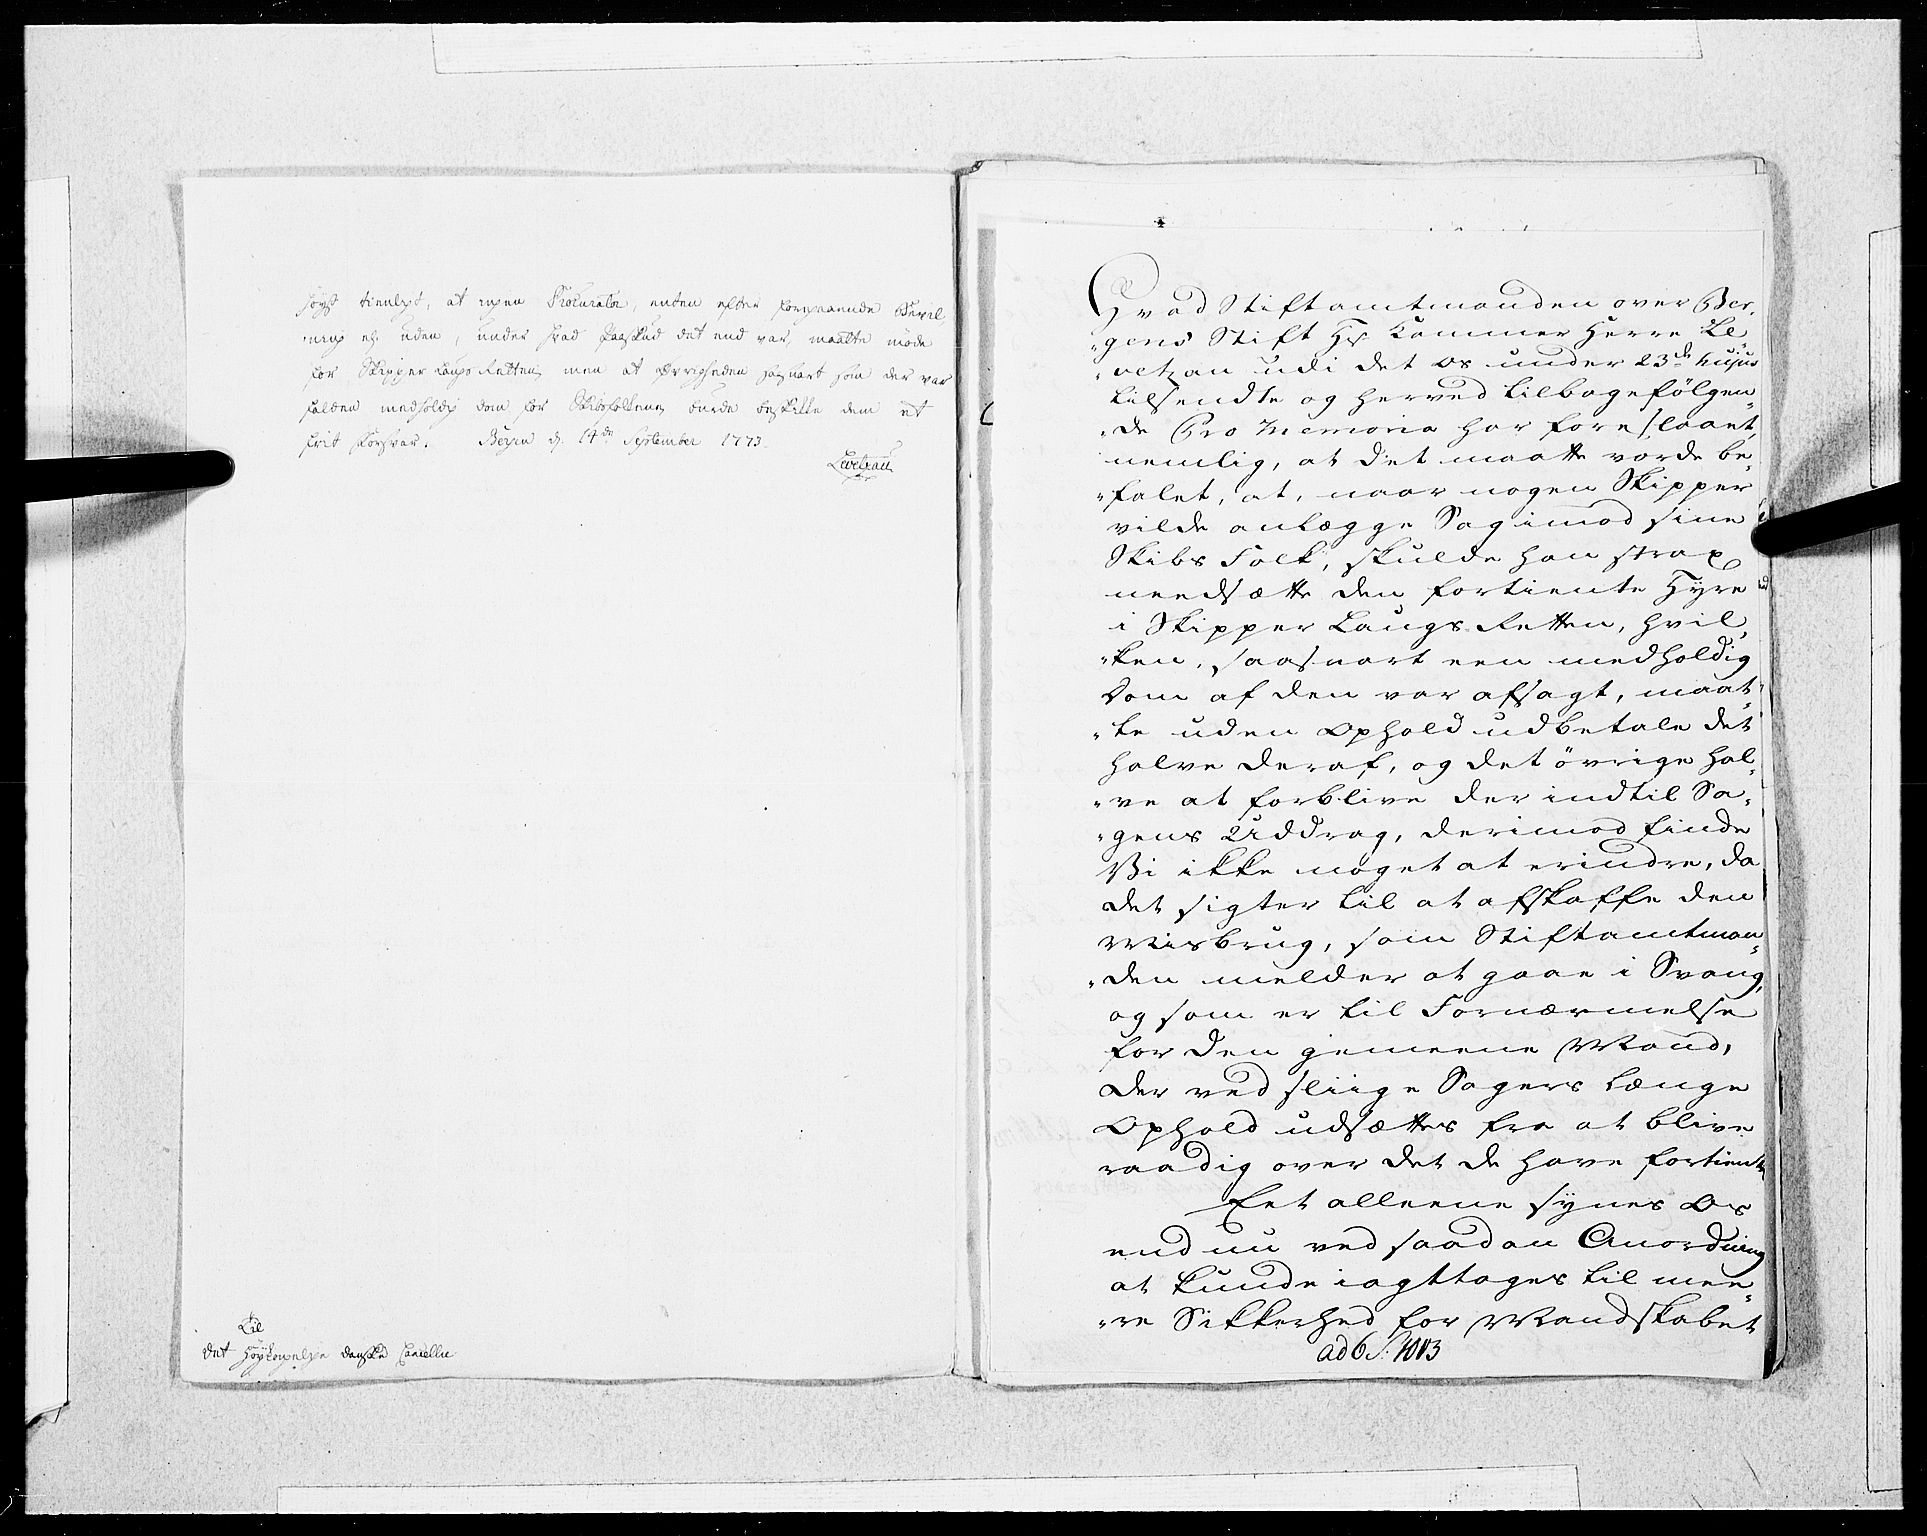 høyst tienligt, at ingen Procurator, enten efter foregaaende Bevil
ning eller uden, under hvad Paaskud det end var, maatte møde
for Skipper Laugs Retten men at Øvrigheden saasnart som der var
falden medholdig dom for Skibsfolkene burde beskikke dem et
frit Forsvar. Bergen d. 14de September 1773.
Levetzau
Til
det Høykongelige danske Cancellie
Hvad Stiftamtmanden over Ber„
„gens Stift Hr Kammer Herre Le„
„vetzau udi det os under 23de hujus
tilsendte og herved tilbagefölgen„
„de Pro Memoria har foreslaaet,
nemlig, at det maatte vorde be„
„falet, at, naar nogen Skipper
vilde anlægge Sag imod sine
Skibs Folk, skulde han strax
needsætte den fortiente Hyre
i Skipper Laugs Retten, hvil„
„ken, saasnart een medholdig
Dom af den var afsagt, maat„
„te uden Ophold udbetale det
halve deraf, og det övrige hal„
„ve at forblive der indtil Sa„
„gens Uddrag, derimod finde
Vi ikke noget at erindre, da
det sigter til at afskaffe den
Misbrug, som Stiftamtman„
„den melder at gaae i Svang,
og som er til Fornærmelse
for den gemeene Mand,
der ved sliige Sagers længe
Ophold udsættes fra at blive
raadig over det de have fortient
Eet alleene synes Os
end nu ved saadan Anordning
at kunde iagttages til mee„
„re Sikkerhed for Mandskabet
ad 6 S: 1083